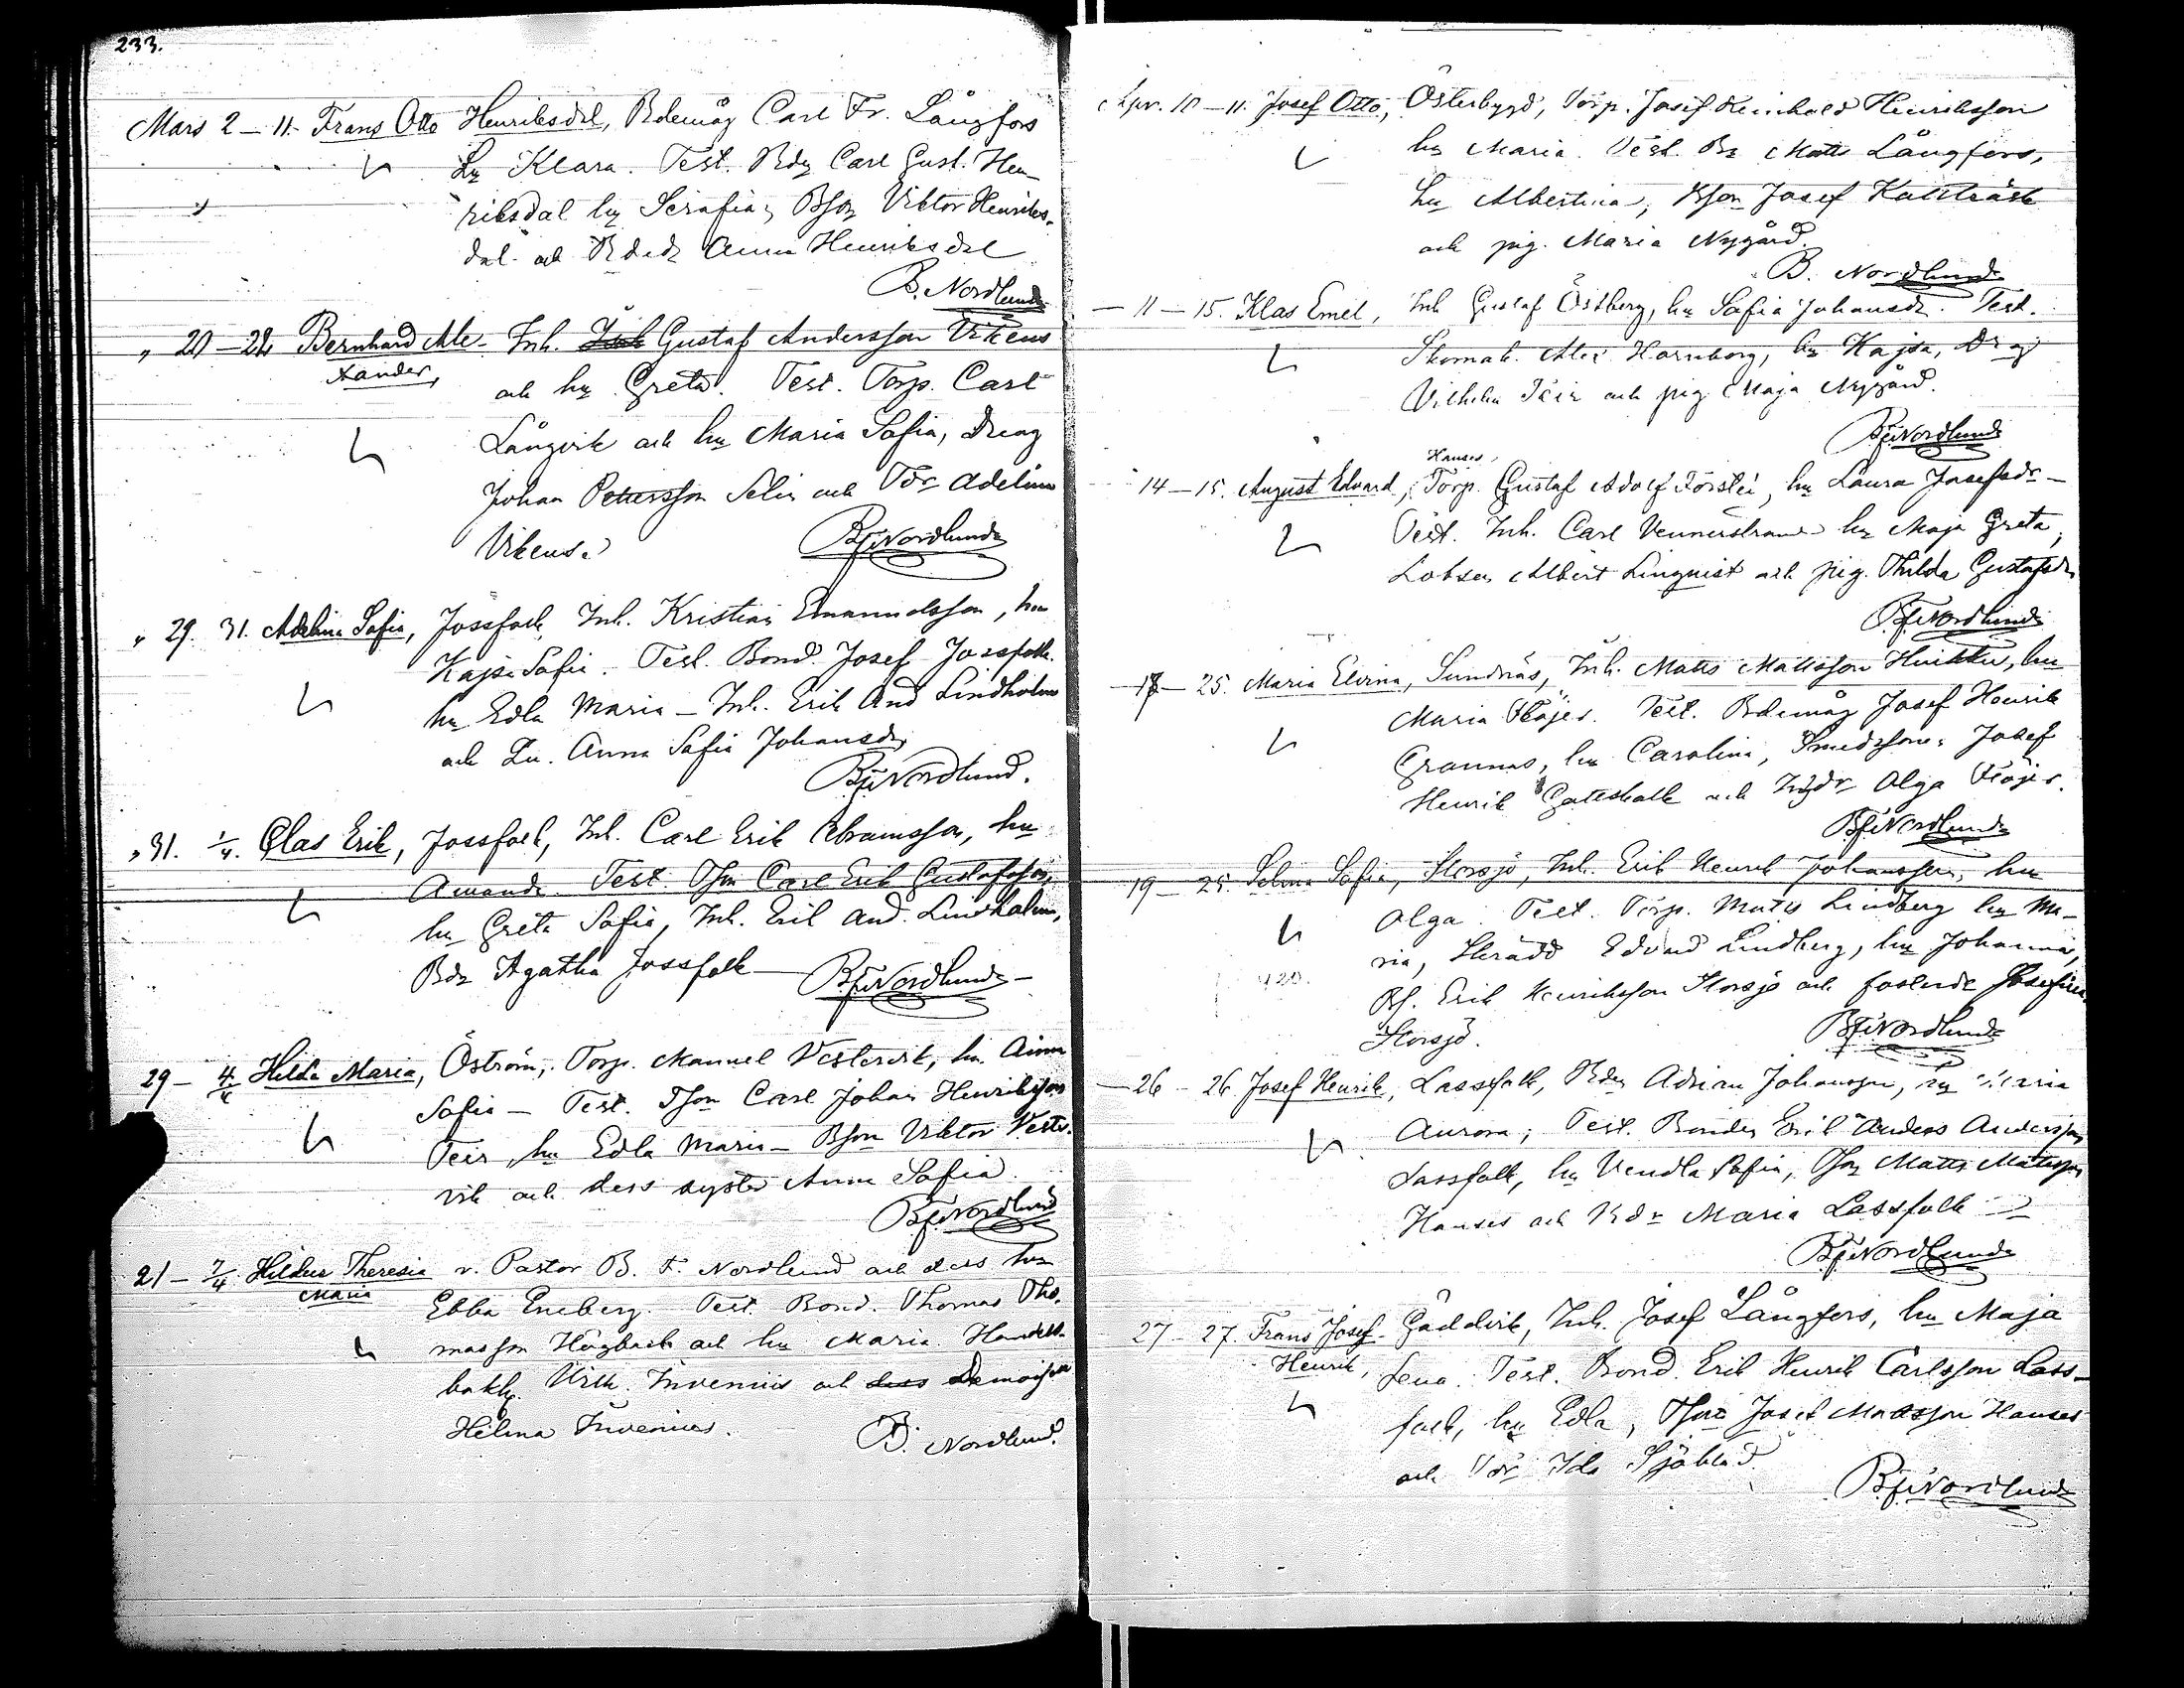 233.
Mars 2 - 11. Frans Otto Henriksdal, Bdemåg Carl Fr. Långfors
hu Klara. Test. Bdn Carl Gust. Hen-
riksdal hu Serafia, Bson Viktor Henriks-
dal och Bdedr Anna Henriksdal
B. Nordlund
" 20 - 24 Bernhard Ale- Inh. Gustaf Andersson Vikens
xander, och hu Greta. Test. Torp. Carl
Långvik och hu Maria Sofia, Dreng
Johan Pettersson Selin och Tdr Adelina
Vikens.
B.F. Nordlund
" 29. 31. Adelina Sofia, Jossfolk, Inh. Kristian Emanuelsson, hu
Kajsa Sofia. Test. Bond. Josef Jossfolk
hu Edla Maria - Inh. Erik And Lindholm
och Anna Sofia Johansdr
B.F. Nordlund.
" 31. 1/4. Clas Erik, Jossfolk, Inh. Carl Erik Abramsson, hu
Amanda. Test. Carl Erik Gustafsson,
hu Greta Sofia, Inh. Erik And. Lindholm,
Bdr Agatha Jossfolk
B.F. Nordlund
29 - 4/4 Hilda Maria, Öström, Torp. Manuel Vestervik, hu Anna
Sofia - Test. Tson Carl Johan Henriksson
Teir, hu Edla Maria - Bson Viktor Vester-
vik och dess syster Anna Sofia
B.F. Nordlund
21 - 7/4 Hildur Theresia v. Pastor B. F. Nordlund och dess hu
Maria Ebba Eneberg. Test. Bond. Thomas Tho-
masson Högback och hu Maria. Handels-
bokh. Invenius och dess Demoiselle
Helena Invenius.
B. Nordlund.
Apr. 10 - 11. Josef Otto, Österbygd, Torp. Josef Reinhold Henriksson
hu Maria. Test. Matts Långfors,
hu Albertina, Bson Josef Kalltråsk
och pig. Maria Nygård.
B. Nordlund
- 11 - 15. Klas Emil, Inh Gustaf Östberg, hu Sofia Johansdr. Test.
Skomak. Alex Harnborg, hu Kajsa, Drg
Vilhelm Teir och pig Maja Nygård.
B.F. Nordlund
Hanses,
14 - 15. August Edvard, Torp. Gustaf Adolf Förstei, hu Laura Josefsdr -
Test. Inh. Carl Vennerstrand hu Maja Greta,
Lotsen Albert Linqvist och pig. Thilda Gustafsdr
B.F. Nordlund
- 18 - 25. Maria Elvina, Sundnäs, Inh. Matts Mattsson hu
Maria Flöjer. Test. Bdemåg Josef Henrik
Grannas, hu Carolina, Smedsson Josef
Henrik och Inhdr Olga Flöjer.
B.F. Nordlund
19 - 25. Selma Sofia, Storsjö, Inh. Erik Henrik Johansson, hu
Olga. Test. Torp. Matts Lindberg hu Ma-
ria, Skrädd Edvard Lindberg, hu Johanna,
Bs. Erik Henriksson Storsjö och fosterdr Josefina
Storsjö.
B.F. Nordlund
- 26 - 26 Josef Henrik, Lassfolk, Bdn Adrian Johansson, hu Maria
Aurora; Test. Bonden Erik Anders Andersson
Lassfolk, hu Vendla Sofia, Tson Matts Mattsson
Hanses och Bdr Maria Lassfolk
B.F. Nordlund
27 - 27. Frans Josef- Gåddvik, Inh. Josef Långfors, hu Maja
Henrik, Lena. Test. Bond. Erik Henrik Carlsson Lass-
folk, hu Edla, Tson Josef Mattsson Hanses
och Tdr Ida Sjöblad.
B.F. Nordlund